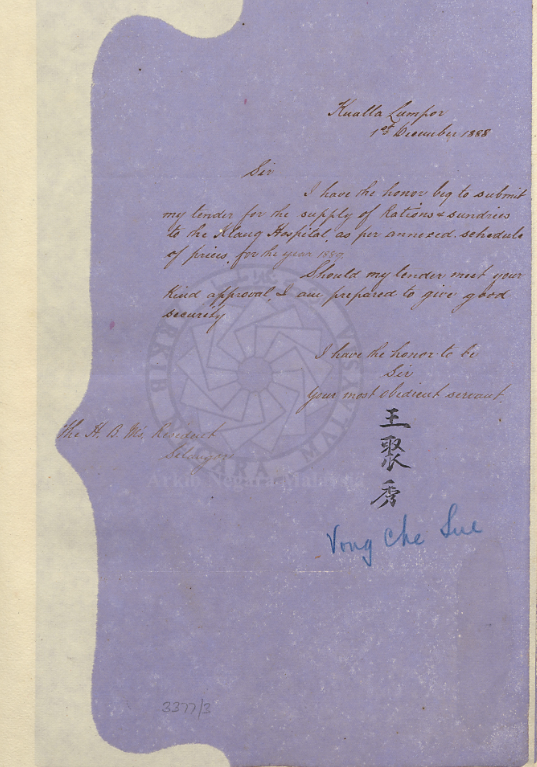 Kualla Lumpor
1st December 1888
Sir
I have the honor beg to submit
my tender for the supply of Rations & sundries
to the Klang Hospital, as per annexed schedule
of prices, for the year 1889.
Should my tender meet your
kind approval, I am prepared to give good
security
I have the honor to be
Sir
Your most Obedient servant
王聚秀
Vong Che Sue
The H. B. M's Resident
Selangor
Arkib Negara Malaysia
3377/3